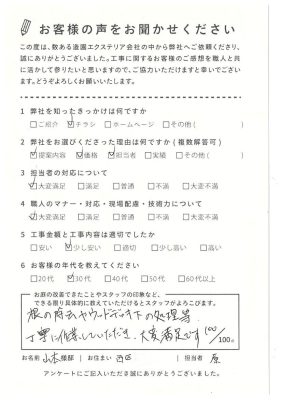 お客様の声をお聞かせください
この度は、数ある造園エクステリア会社の中から弊社へご依頼くださり、
誠にありがとうございました。工事に関するお客様のご感想を職人と共
に活かして参りたいと思いますので、ご協力いただけますと幸いでござい
ます。どうぞよろしくお願いいたします。
1 弊社を知ったきっかけは何ですか
□ご紹介 ☑チラシ □ホームページ □その他( )
2 弊社をお選びくださった理由は何ですか(複数解答可)
☑提案内容 ☑価格 ☑担当者 □実績 □その他( )
3 担当者の対応について
☑大変満足 □満足 □普通 □不満 □大変不満
4 職人のマナー・対応・現場配慮・技術力について
☑大変満足 □満足 □普通 □不満 □大変不満
5 工事金額と工事内容は適切でしたか
□安い ☑少し安い □適切 □少し高い □高い
6 お客様の年代を教えてください
□20代 ☑30代 □40代 □50代 □60代以上
お庭の改善できたことやスタッフの印象など、
できる限り具体的に教えていただけるとスタッフがよろこびます。
根の府去やウッドデッキ下の処理等
丁寧に作業していただき、大変満足です 100/100点
お名前 山本様邸 お住まい 西区 担当者 原
アンケートにご記入いただき誠にありがとうございました。